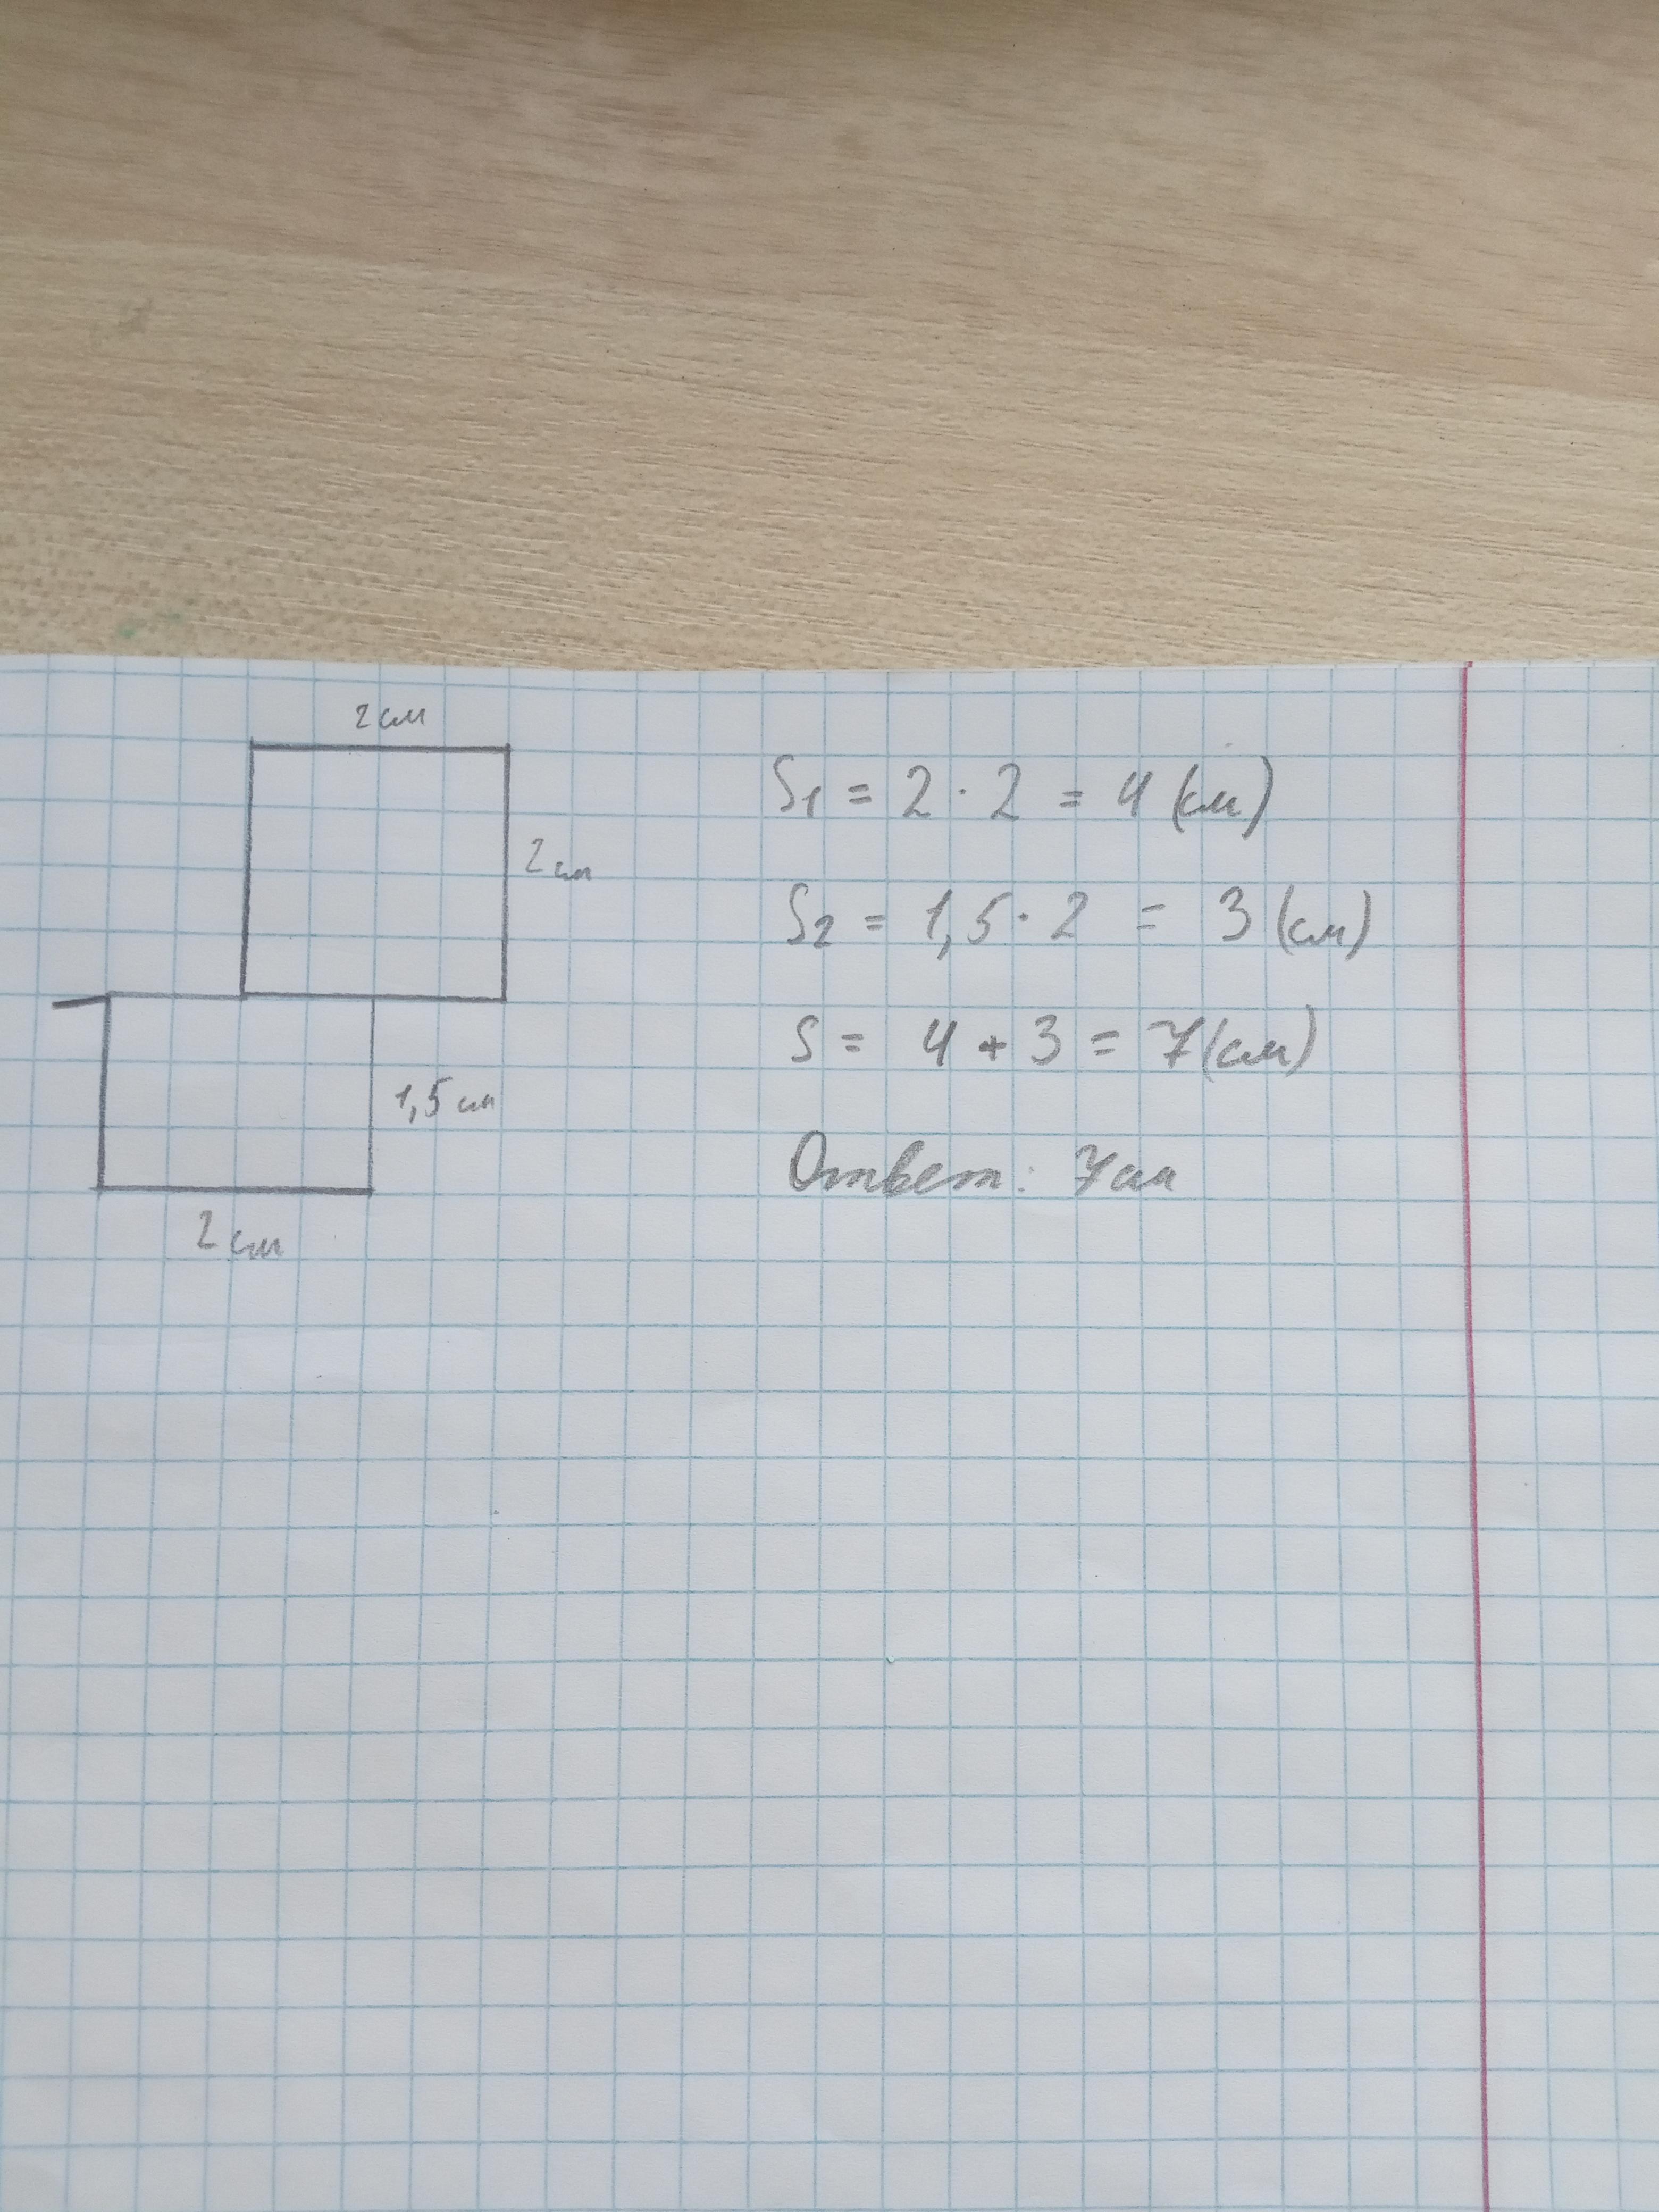 2 см
S₁ = 2 · 2 = 4 (см)
2 см
S₂ = 1,5 · 2 = 3 (см)
S = 4 + 3 = 7 (см)
1,5 см
Ответ: 7 см
2 см